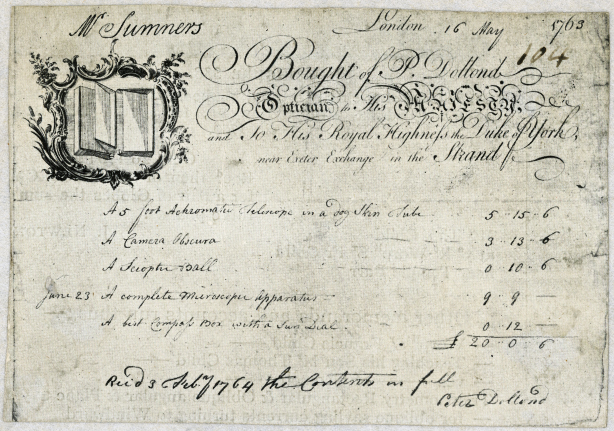 Mr Sumners
London 16 May 1763
104
Bought of P. Dollond
Optician to His MAJESTY,
and to His Royal Highness the Duke of York,
near Exeter Exchange in the Strand
A 5 foot Achromatic Telescope in a dog Skin Tube 5 .. 15 .. 6
A Camera Obscura 3 .. 13 .. 6
A Scioptic Ball 0 10 .. 6
June 23 A complete Microscopic Apparatus — 9 .. 9 —
A best Compass Box with a Sun Dial . 0 .. 12 —
£ 20 .. 0 .. 6
Rec'd 3 Feb'ry 1764 the Contents in full
Peter Dollond